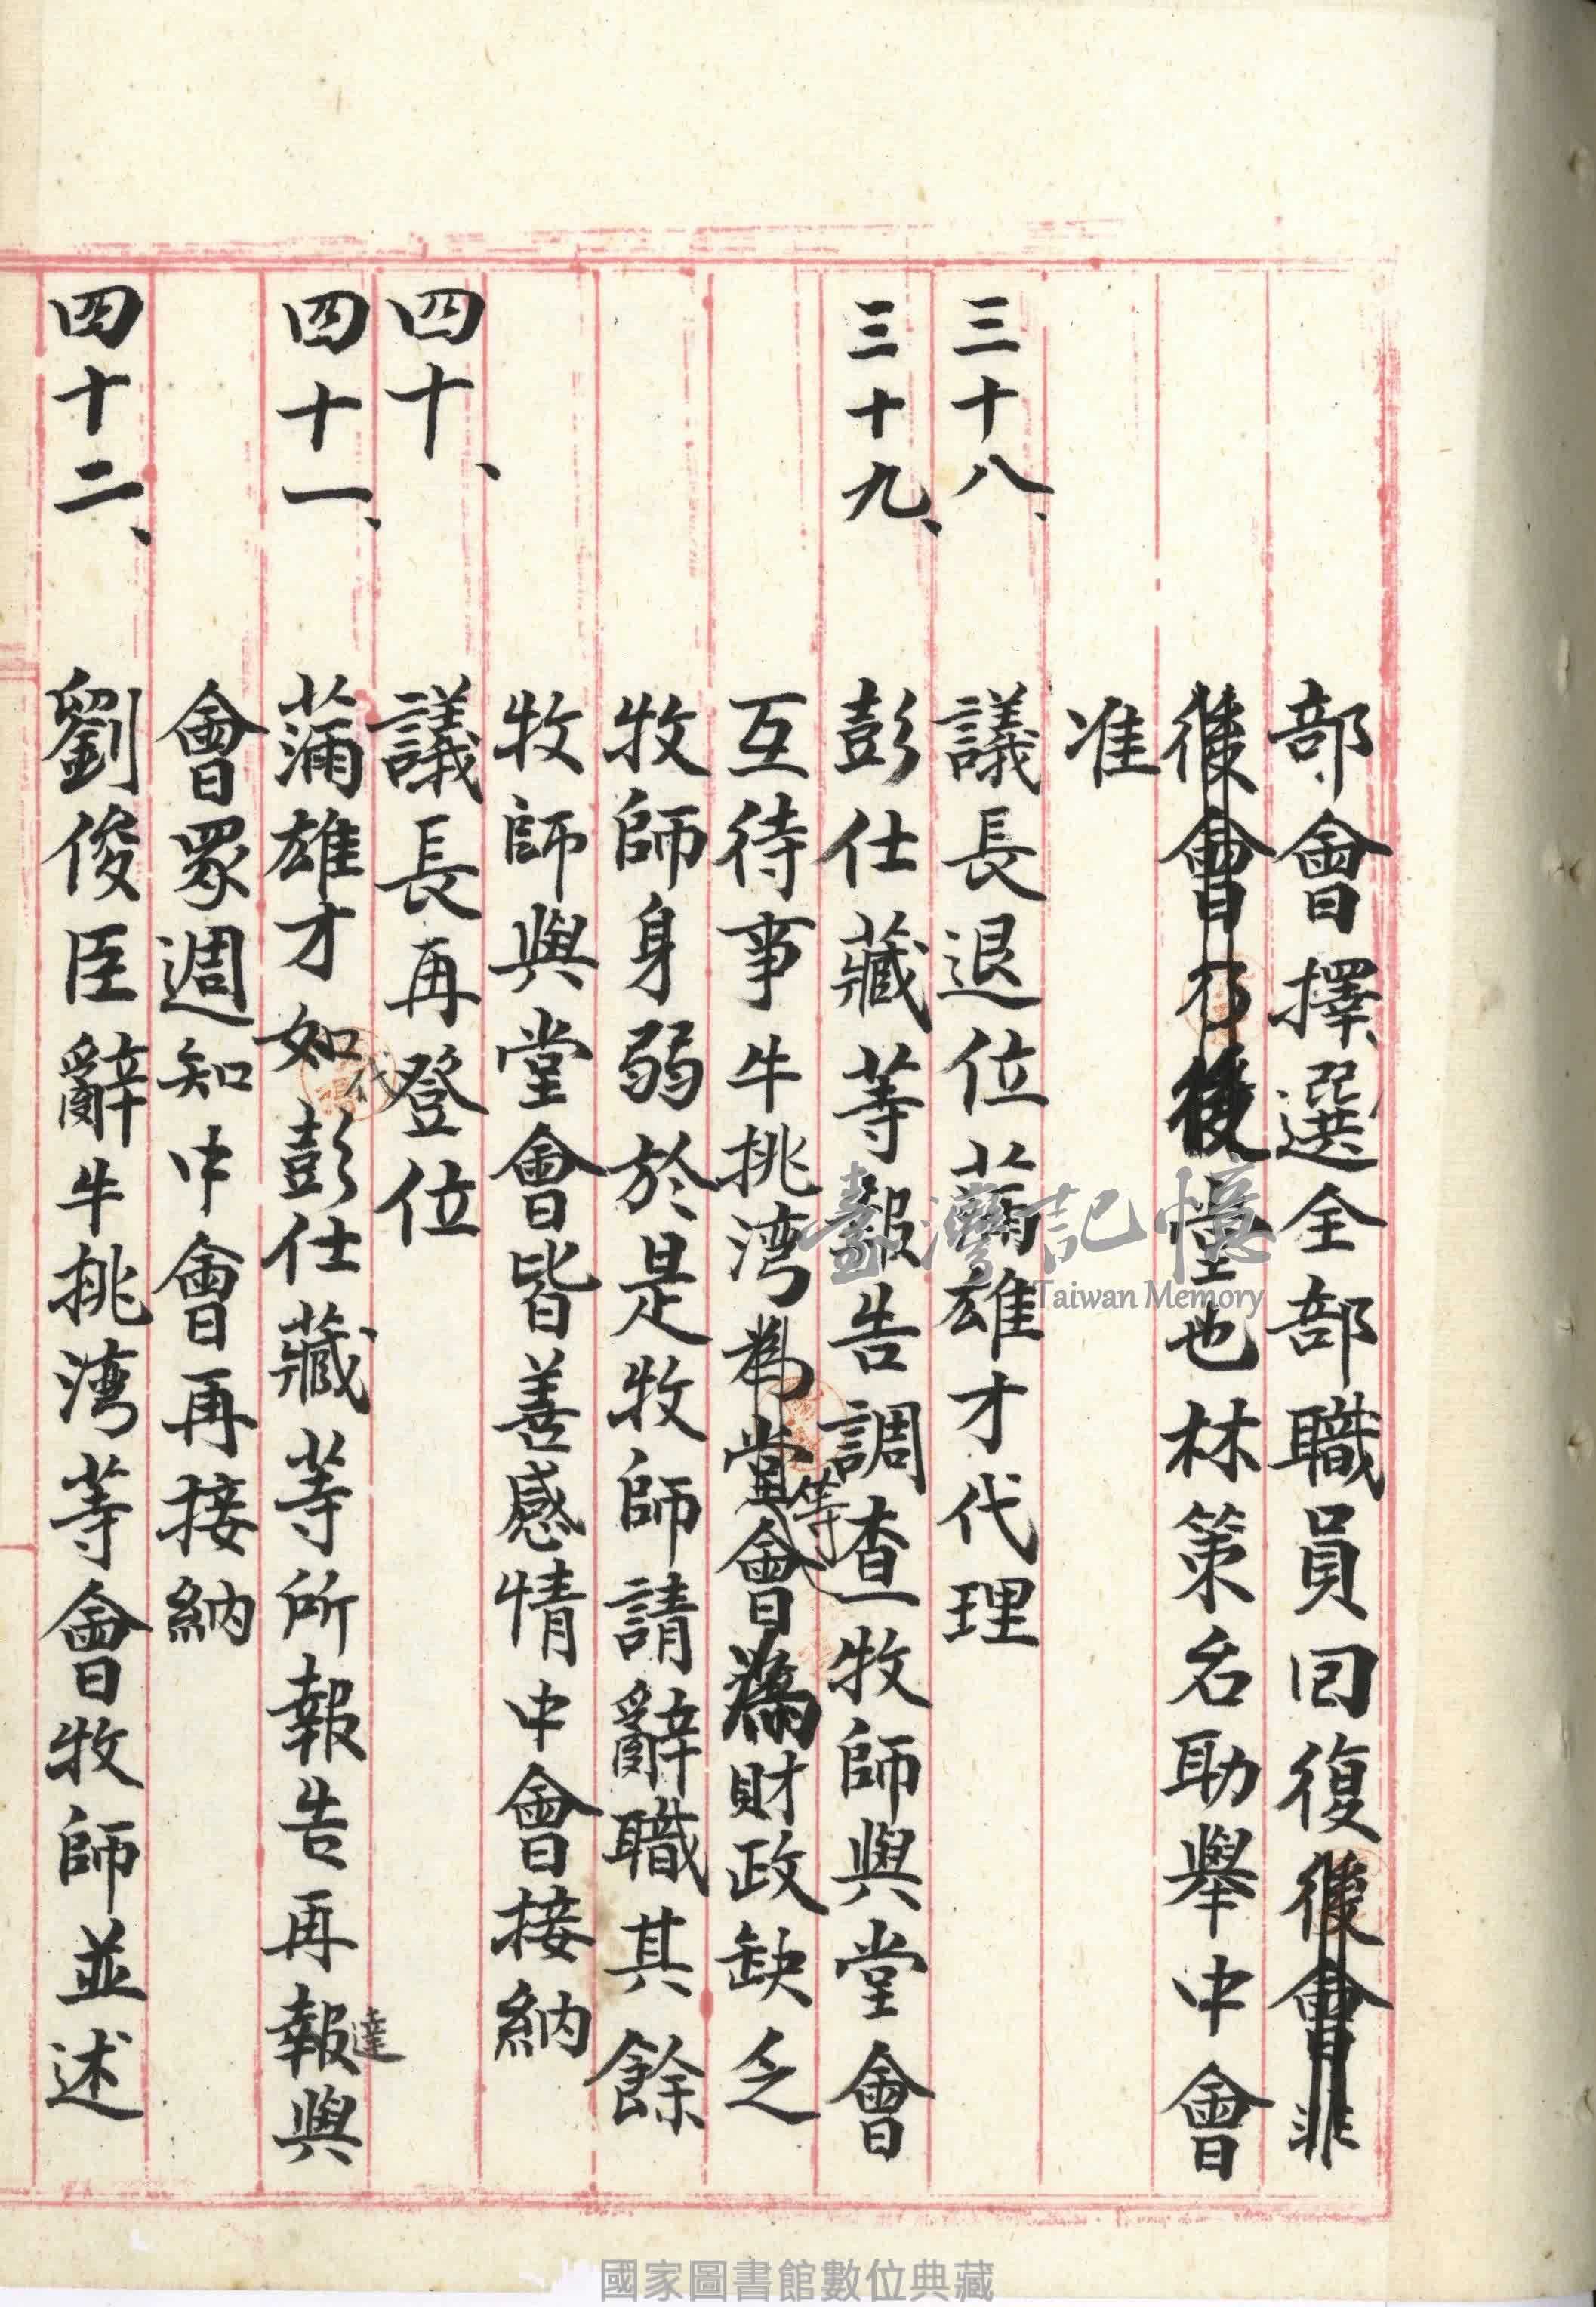 部會擇選全部職員回復後會非
後會乃後〓也林策名助舉中會
准
三十八、議長退位蕭雄才代理
三十九、彭仕藏等報告調查牧師與堂會
互待事牛挑湾為當等會為財政缺乏
牧師身弱於是牧師請辭職其餘
牧師與堂會皆善感情中會接納
四十、議長再登位
四十一、蕭雄才如代彭仕藏等所報告再報達與
會眾週知中會再接納
四十二、劉俊臣辭牛挑湾等會牧師並述
臺灣記憶
Taiwan Memory
國家圖書館數位典藏